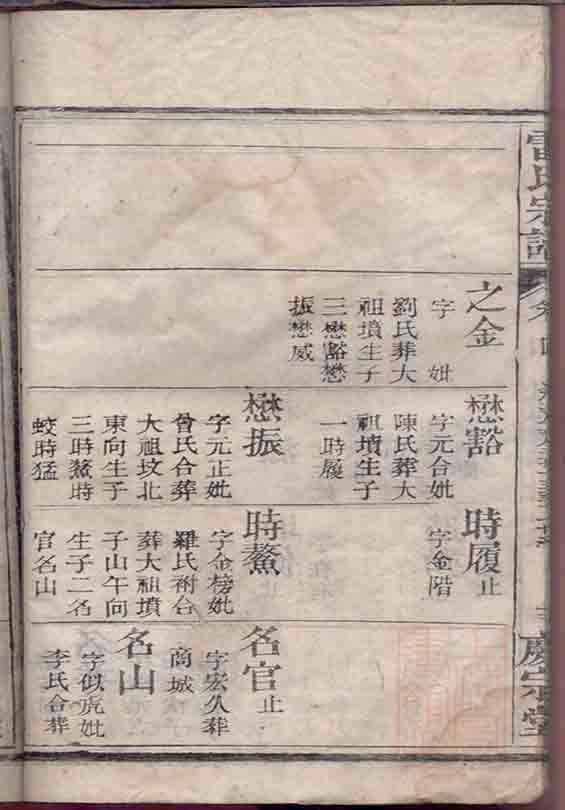 雷氏宗譜
卷四
慶宗堂
之金
字 妣
劉氏葬大
祖墳生子
三懋豁懋
振懋威
懋豁
字元合妣
陳氏葬大
祖墳生子
一時履
懋振
字元正妣
曾氏合葬
大祖坟北
東向生子
三時鰲時
蛟時猛
時履止
字金階
時鰲
字金榜妣
羅氏祔合
葬大祖墳
子山午向
生子二名
官名山
名官止
字宏久葬
商城
名山
字似虎妣
李氏合葬